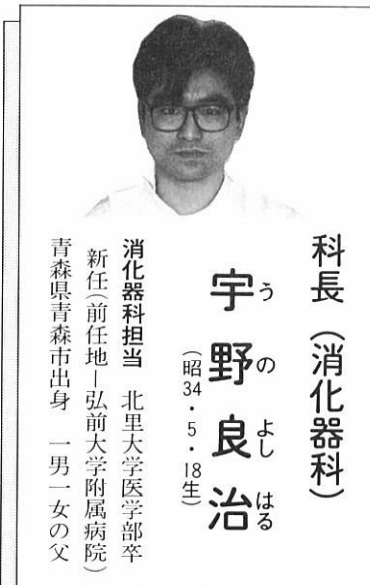 科長（消化器科）
宇野良治
うのよしはる
（昭34・5・18生）
消化器科担当　北里大学医学部卒
新任（前任地―弘前大学附属病院）
青森県青森市出身　一男一女の父